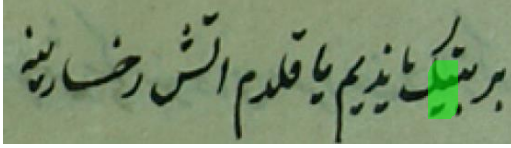 بر بیتیك یازدیم یا قلدم اتش رخسارینه